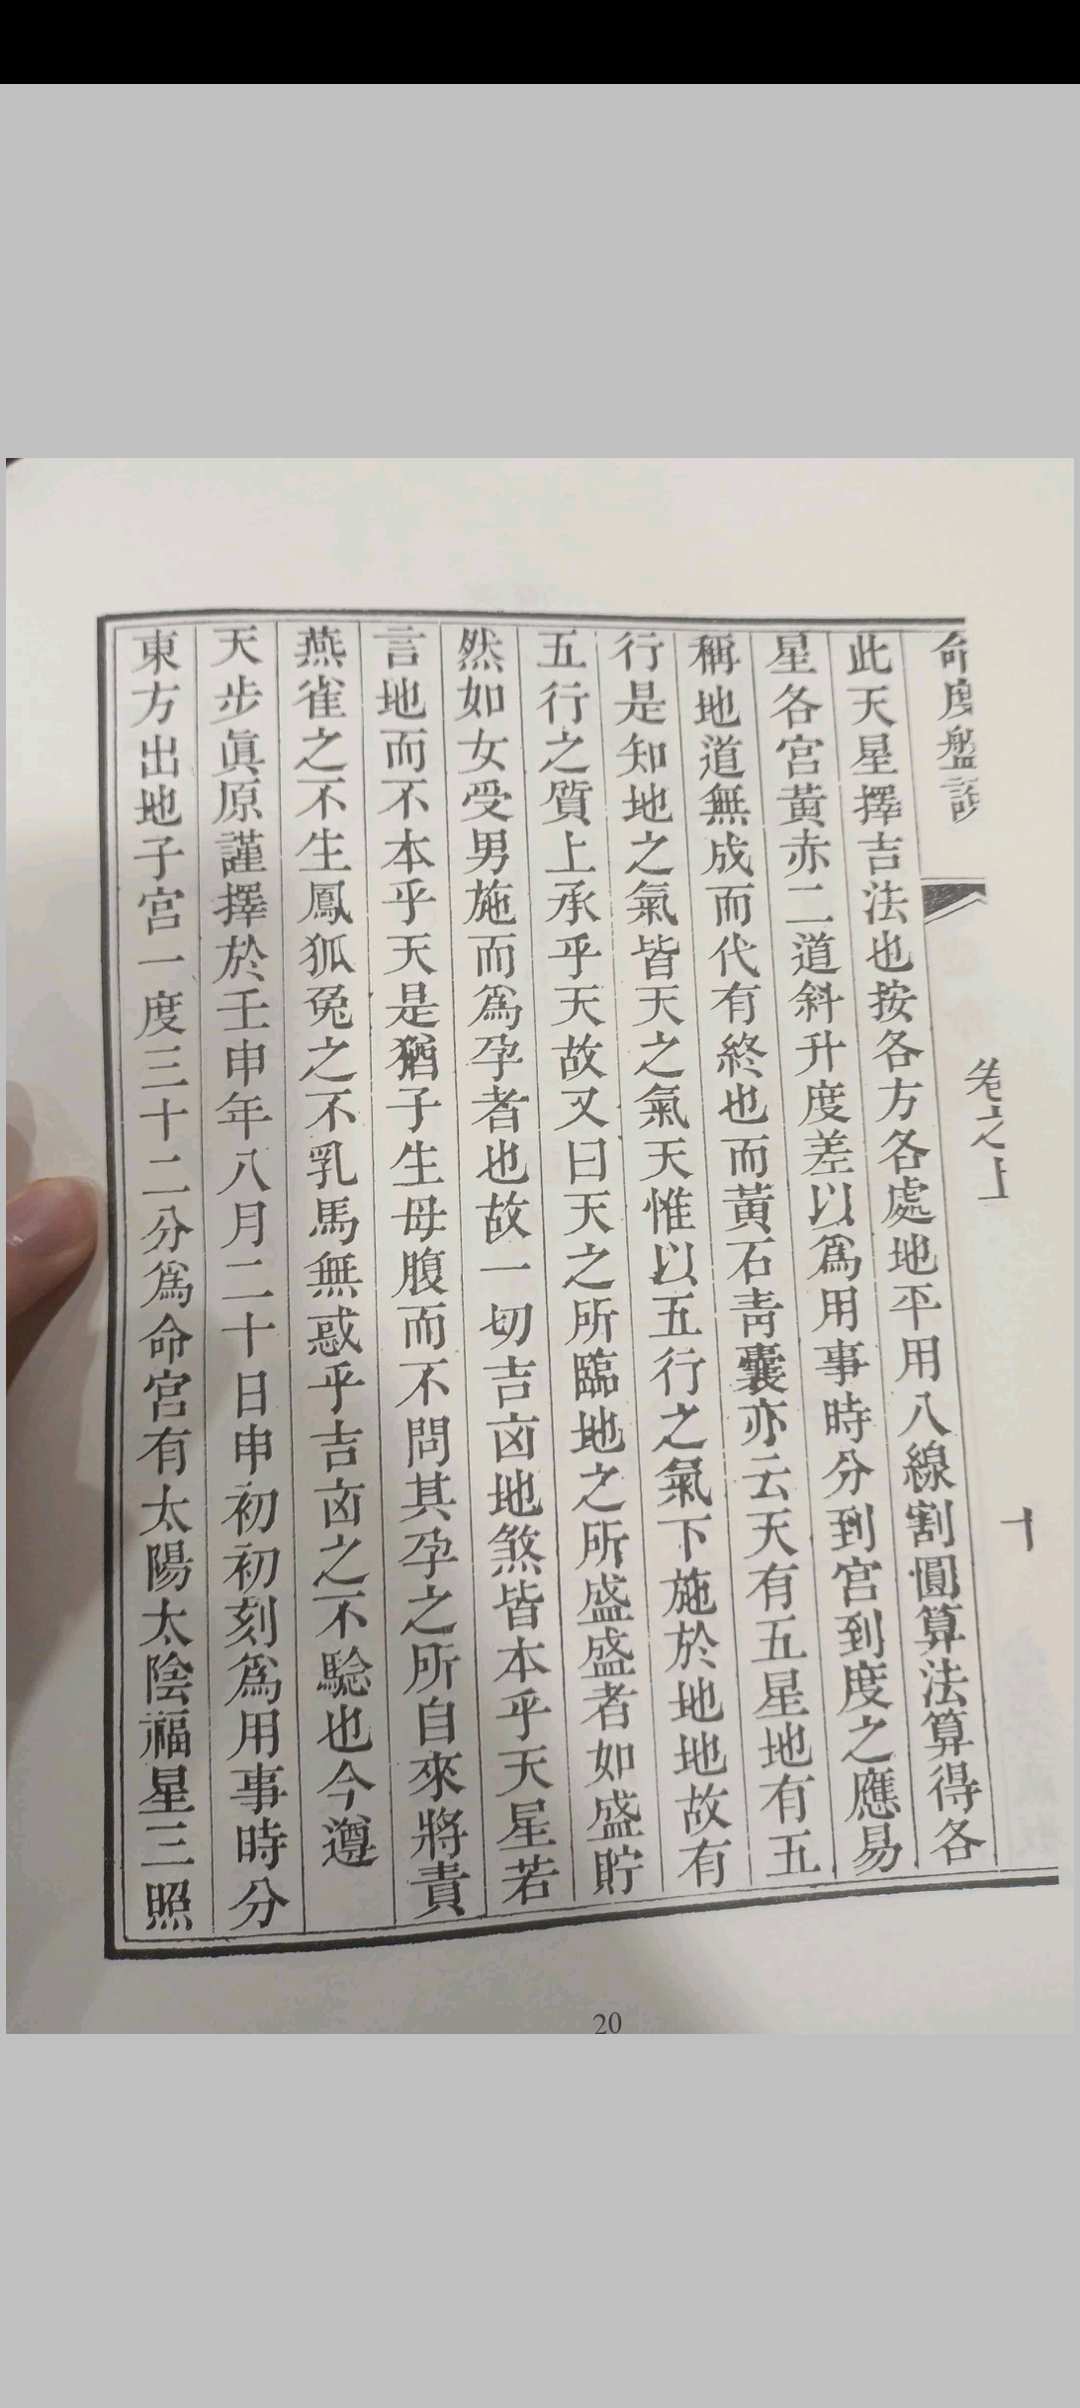 命度盤說
卷之上
十
此天星擇吉法也按各方各處地平用八線割圓算法算得各
星各宮黃赤二道斜升度差以爲用事時分到宮到度之應易
稱地道無成而代有終也而黃石靑囊亦云天有五星地有五
行是知地之氣皆天之氣天惟以五行之氣下施於地地故有
五行之質上承乎天故又曰天之所臨地之所盛盛者如盛貯
然如女受男施而爲孕者也故一切吉凶地煞皆本乎天星若
言地而不本乎天是猶子生母腹而不問其孕之所自來將責
燕雀之不生鳳狐兔之不乳馬無惑乎吉凶之不騐也今遵
天步眞原謹擇於壬申年八月二十日申初初刻爲用事時分
東方出地子宮一度三十二分爲命宮有太陽太陰福星三照
20